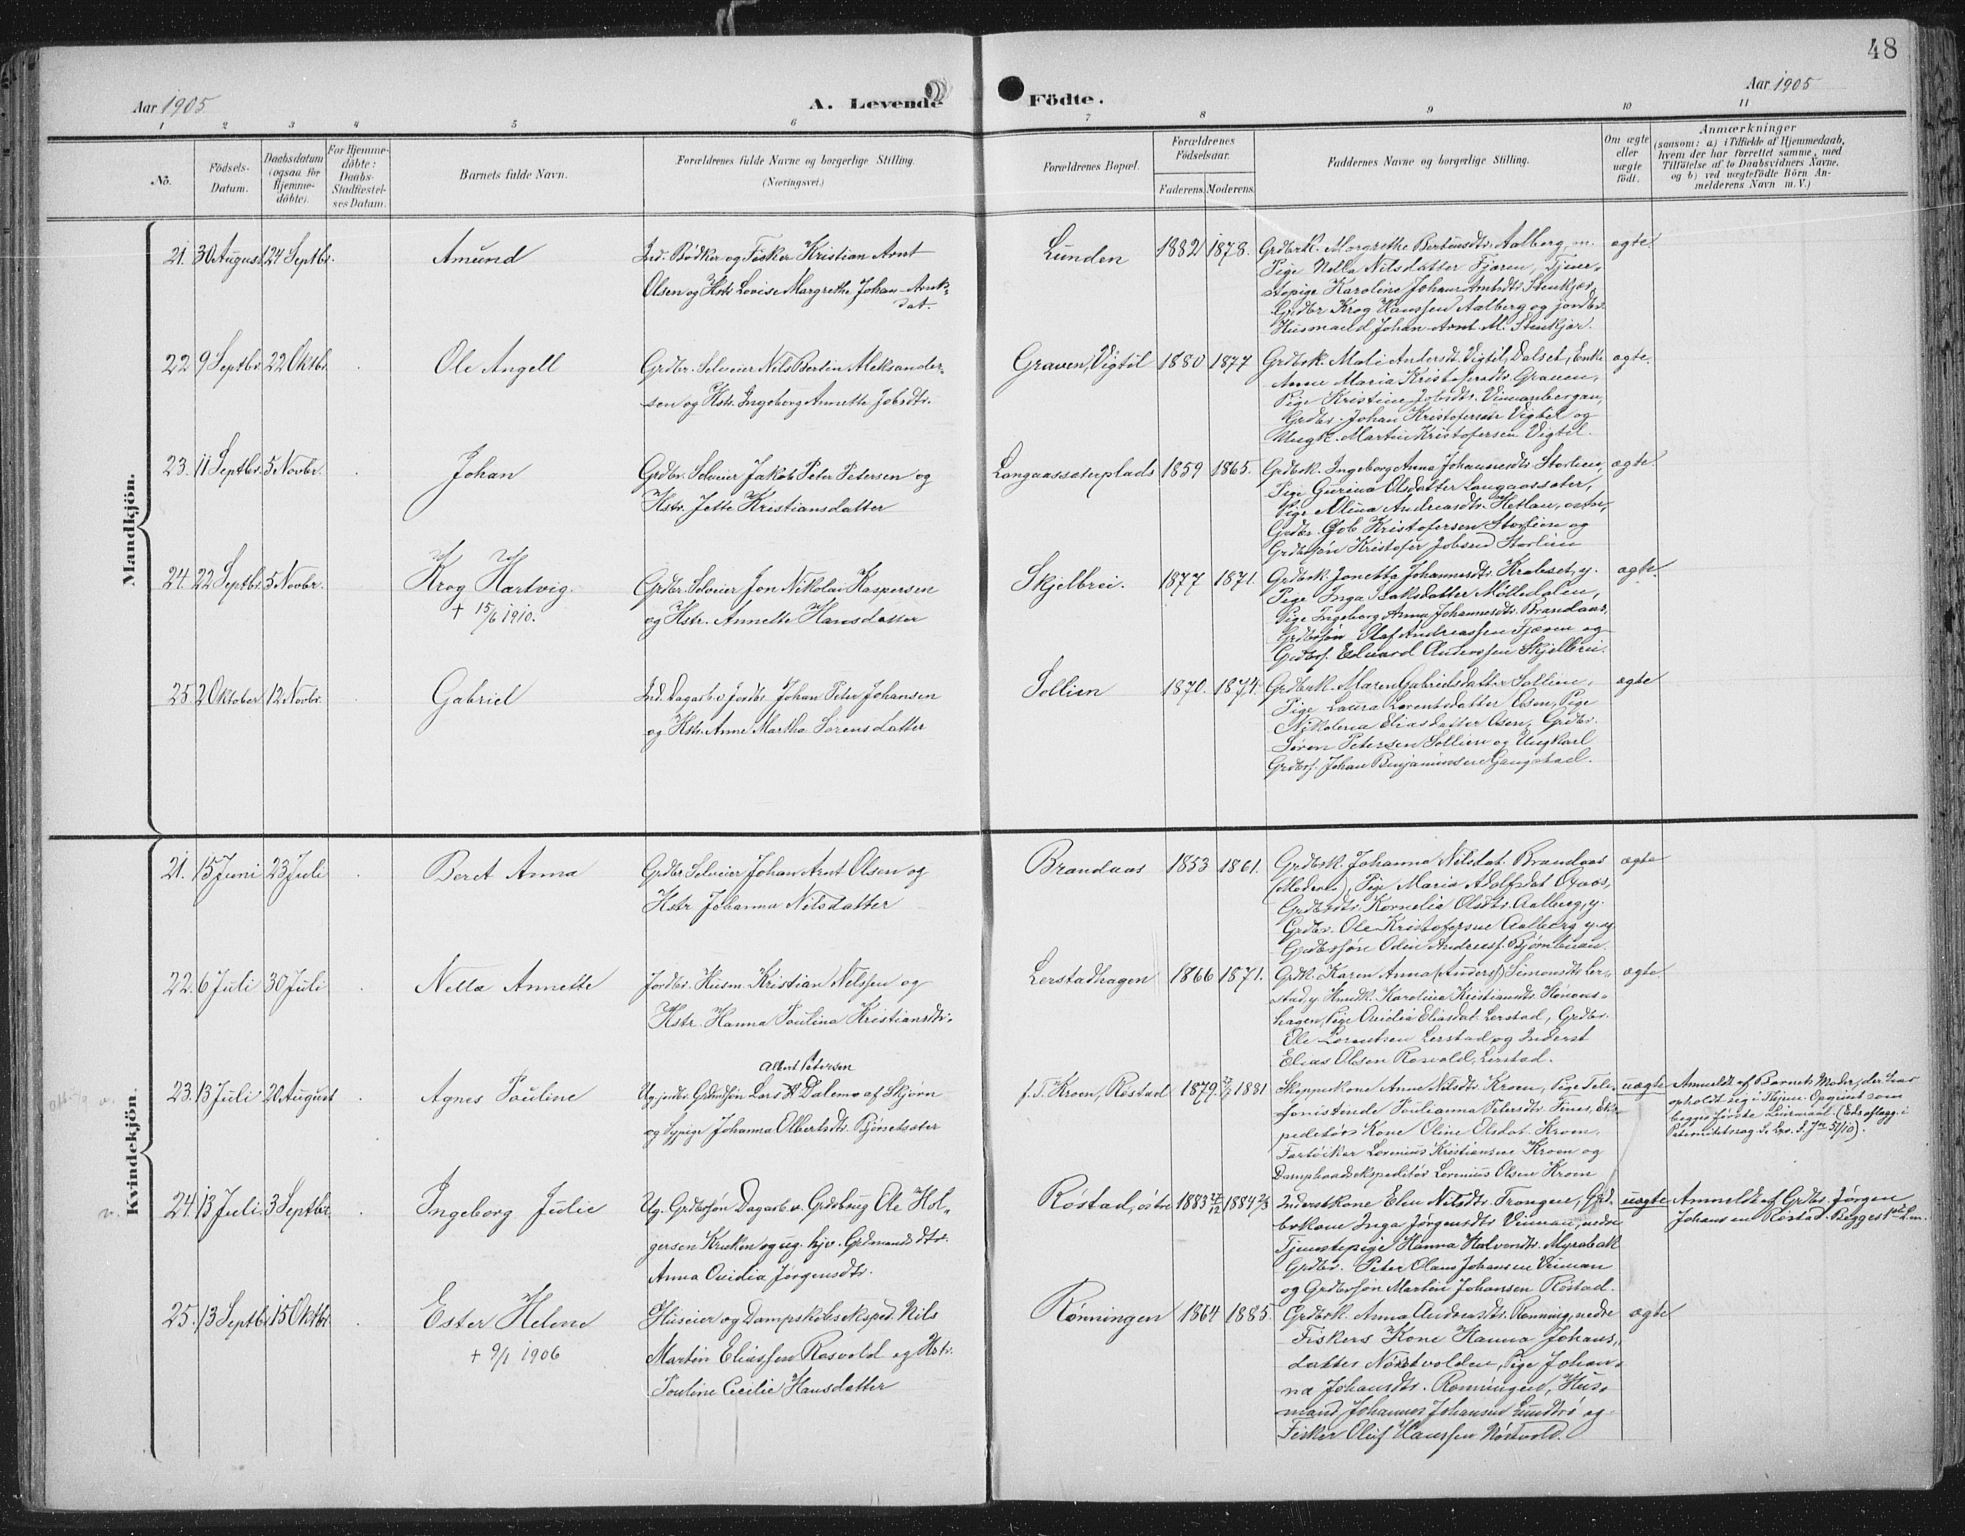 48
Aar 1905
A. Levende Födte.
Aar 1905
1 2 3 4 5 6 7 8 9 10 11
No.
Födsels-
Datum.
Daabsdatum
(ogsaa for
Hjemme-
döbte).
For Hjemme-
döbte:
Daabs-
Stadfæstel-
ses Datum.
Barnets fulde Navn.
Forældrenes fulde Navne og borgerlige Stilling.
(Næringsvei.)
Forældrenes Bopæl.
Forældrenes
Födselsaar.
Faderens. Moderens.
Faddernes Navne og borgerlige Stilling.
Om ægte
eller
uægte
födt.
Anmærkninger
(saasom: a) i Tilfælde af Hjemmedaab,
hvem der har forrettet samme, med
Tilföielse af to Daabsvidners Navne,
og b) ved uægtefödte Börn An-
melderens Navn m. V.)
Mandkjön.
21. 30 August 24 Septbr.
Amund
Ind. Bødker og Fisker Kristian Arnt
Olsen og Hstr. Lovise Margrethe Johan-Arnts-
dat.
Lunden
1882 1878.
Grdbrk. Margrethe Bertinsdtr. Aalberg, m.
Pige Nella Nilsdatter Fjæren, Tjene-
stepige Karoline Johan Arntsdtr. Stenkjær,
Grdbr Krog Hanssen Aalberg og jordbr.
Husmand Johan Arnt M. Stenkjær.
ægte.
22 9 Septbr. 22 Oktbr.
Ole Angell
Grdbr. Selveier Nils Bertin Aleksander-
sen og Hstr. Ingeborg Annette Jobsdtr.
Graven, Vigtil
1880 1877
Grdbrk. Mali Andersdt. Vigtil, Dalset, Enke
Anne Maria Kristofersdtr. Graven,
Pige Kristine Jobsdtr. Vinnanbergan,
Grdbr. Johan Kristofersen Vigtil og
Ungk. Martin Kristofersen Vigtil.
ægte.
23. 11 Septbr. 5 Novbr.
Johan
Grdbr. Selveier Jakob Peter Petersen og
Hstr. Jette Kristiansdatter
Langaassæterplads
1859 1865.
Grdbrk. Ingeborg Anna Johannesdtr. Storlien,
Pige Gurina Olsdatter Langaassæter,
Pige Alina Andreasdtr. Hetlan, østre,
Grdbr. Job Kristofersen Storlien og
Grdbrsøn Kristofer Jobsen Storlien
ægte.
24. 22 Septbr. 5 Novbr.
Krog Hartvig.
+ 15/6 1910.
Grdbr. Selveier Jon Nikolai Kaspersen
og Hstr. Annette Hansdatter
Skjelbrei.
1877 1871.
Grdbrk. Jonetta Johannesdtr. Krabset, y.
Pige Inga Isaksdatter Mølledalen,
Pige Ingeborg Anna Johannesdtr. Brandaas,
Grdbrsøn Olaf Andreassen Fjæren og
Grdbrs. Edvard Anderssen Skjelbrei.
ægte.
25. 2 Oktober 12 Novbr.
Gabriel
Ind. Dagarb. v. Jordbr. Johan Peter Johansen
og Hstr. Anne Martha Sørensdatter
Sollien
1870. 1874.
Grdbrk. Maren Gabrielsdatter Sollien,
Pige Laura Lorentsdatter Øsen, Pige
Nikolena Eliasdatter Øsen, Grdbr.
Søren Petersen Sollien og Ungkarl
Grdbrs. Johan Benjaminsen Gangstad.
ægte
Kvindekjön.
21. 15 Juni 23 Juli
Beret Anna
Grdbr. Selveier Johan Arnt Olsen og
Hstr Johanna Nilsdatter
Brandaas
1853 1861.
Grdbrk. Johanna Nilsdat. Brandaas
(Moderen), Pige Maria Adolfsdat
Grdbrdtr. Kornelia Olsdtr. Aalberg, y.
Grdbr. Ole Kristofersen Aalberg y. og
Grdbrsøn Odin Andreass. Bjørnbuan.
ægte
22. 6 Juli 30 Juli
Nella Annette
Jordbr. Husm. Kristian Nilssen og
Hstr. Hanna Paulina Kristiansdtr.
Lerstadhagen
1866 1871.
Grdk. Karen Anna (Anders) Simonsdtr. Ler-
stad, y. Hmdk. Karolina Kristiansdtr.
hagen, Pige Ovidia Eliasdat. Lerstad, Grdbr.
Ole Lorentsen Lerstad og Inderst
Elias Olsen Rosvold, Lerstad.
ægte
23. 13 Juli 20 August
Agnes Pauline
Albert Petersen
Ug. inder. Grdmdsøn Lars A Dalemo af Skjørn
og Sypige Johanna Olbertsdtr. Bjørsetsæter
f. T. Kroen, Røstad
1879 1881
Skippskone Anne Nilsdtr. Kroen, Pige Tele-
fonistinde Paulianna Petersdtr. Fines, Eks-
peditørs Kone Oline Olsdat. Kroen,
Fartøieier Lorenius Kristiansen Kroen og
Dampbaadsekspeditør Lorenius Olsen Kroen
uægte
Anmeldt af Barnets Moder, der har
opholdt sig i Skjørn. Opgivet som
begges første Leiermaal.
24. 13 Juli. 3 Septbr.
Ingeborg Julie
Ug. Grdbrsøn Dagarb. v. Grdsbrug Ole Hol-
gersen Kruken og ug. hjv. Grdmands dtr.
Anna Ovidia Jørgensdtr.
Røstad, østre
1883 27/12 1884 2/3
Inderstkone Elen Nilsdtr. Trongen, Grd-
brkone Inga Jørgensdtr. Vinnan, nedre
Tjenestepige Hanna Halvorsdtr. Myrabakk
Grdbr. Peter Olaus Johansen Vinnan
og Grdbrsøn Martin Johansen Røstad.
uægte
Anmeldt af Grdbr. Jørgen
Johansen Røstad. Begges 1ste L.m.
25. 13 Septbr. 15 Oktbr.
Ester Helene
+ 9/1 1906
Huseier og Dampskibseksped. Nils
Martin Eliassen Rosvold og Hstr.
Pauline Cecilie Hansdatter
Rønningen
1864 1885.
Grdbrk. Anna Andreasdtr. Rønning, nedre
Fiskers Kone Hanna Johans-
datter Nøstvolden, Pige Johan-
na Johansdtr. Rønningen, Hus-
mand Johannes Johansen Sundsrø og
Fisker Oluf Hanssen Nøstvold.
ægte